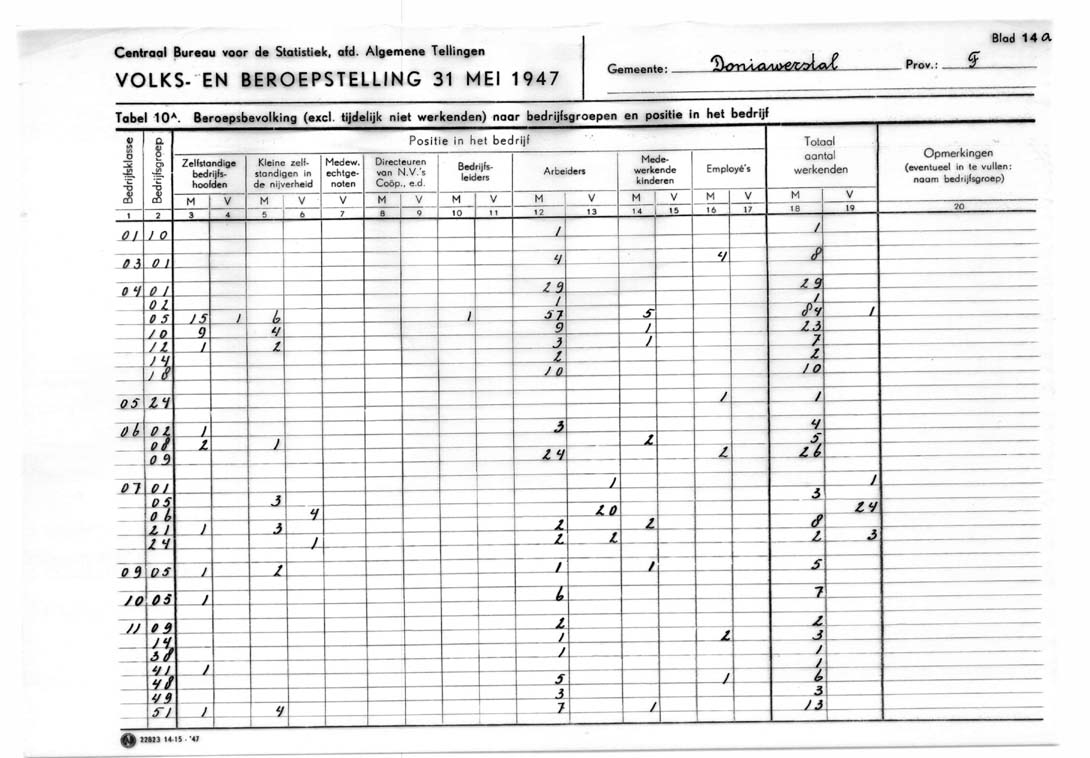 Blad 14 a
Centraal Bureau voor de Statistiek, afd. Algemene Tellingen
VOLKS- EN BEROEPSTELLING 31 MEI 1947
Gemeente: Doniawerstal Prov.: F
Tabel 10A. Beroepsbevolking (excl. tijdelijk niet werkenden) naar bedrijfsgroepen en positie in het bedrijf
Bedrijfsklasse Bedrijfsgroep Positie in het bedrijf Totaal aantal werkenden Opmerkingen (eventueel in te vullen: naam bedrijfsgroep)
Zelfstandige bedrijfs-hoofden Kleine zelf-standigen in de nijverheid Medew. echtge-noten Directeuren van N.V.'s Coöp., e.d. Bedrijfs-leiders Arbeiders Mede-werkende kinderen Employé's
M V M V V M V M V M V M V M V M V
1 2 3 4 5 6 7 8 9 10 11 12 13 14 15 16 17 18 19 20
01 10 1 1
03 01 4 4 8
04 01 29 29
02 1 1
05 15 1 6 1 57 5 84 1
10 9 4 9 1 23
12 1 2 3 1 7
14 2 2
18 10 10
05 24 1 1
06 02 1 3 4
08 2 1 2 5
09 24 2 26
07 01 1 1
05 3 3
06 4 20 24
21 1 3 2 2 8
24 1 2 2 2 3
09 05 1 2 1 1 5
10 05 1 6 7
11 09 2 2
14 1 2 3
38 1 1
41 1 1
48 5 1 6
49 3 3
51 1 4 7 1 13
22823 14-15 - '47